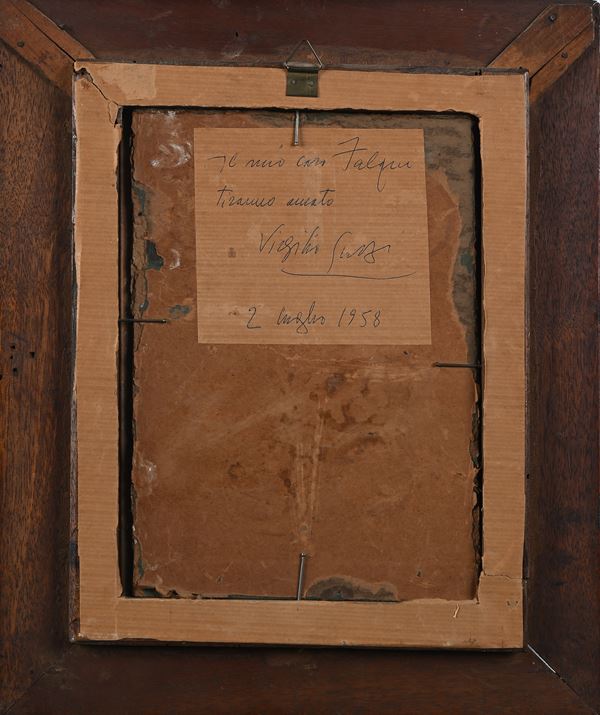 Il mio caro Falqui
tiranno amato
Virgilio Guzzi
2 luglio 1958